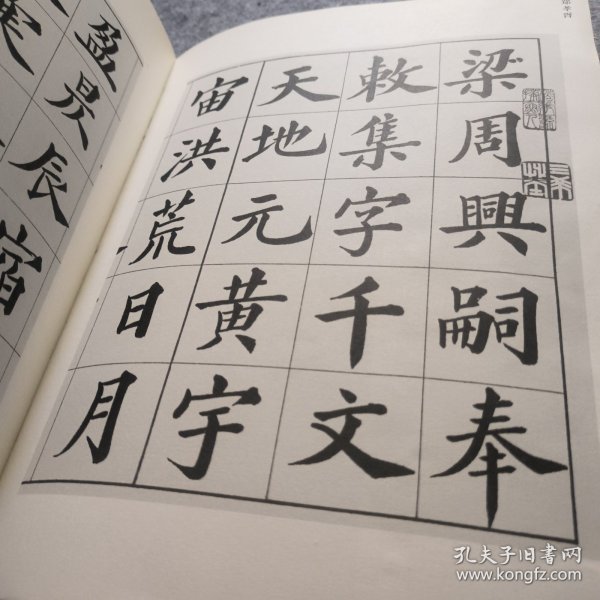 梁周興嗣奉
敕集字千文
天地元黃宇
宙洪荒日月
盈昃辰宿
孔夫子旧书网
www.kongfz.com